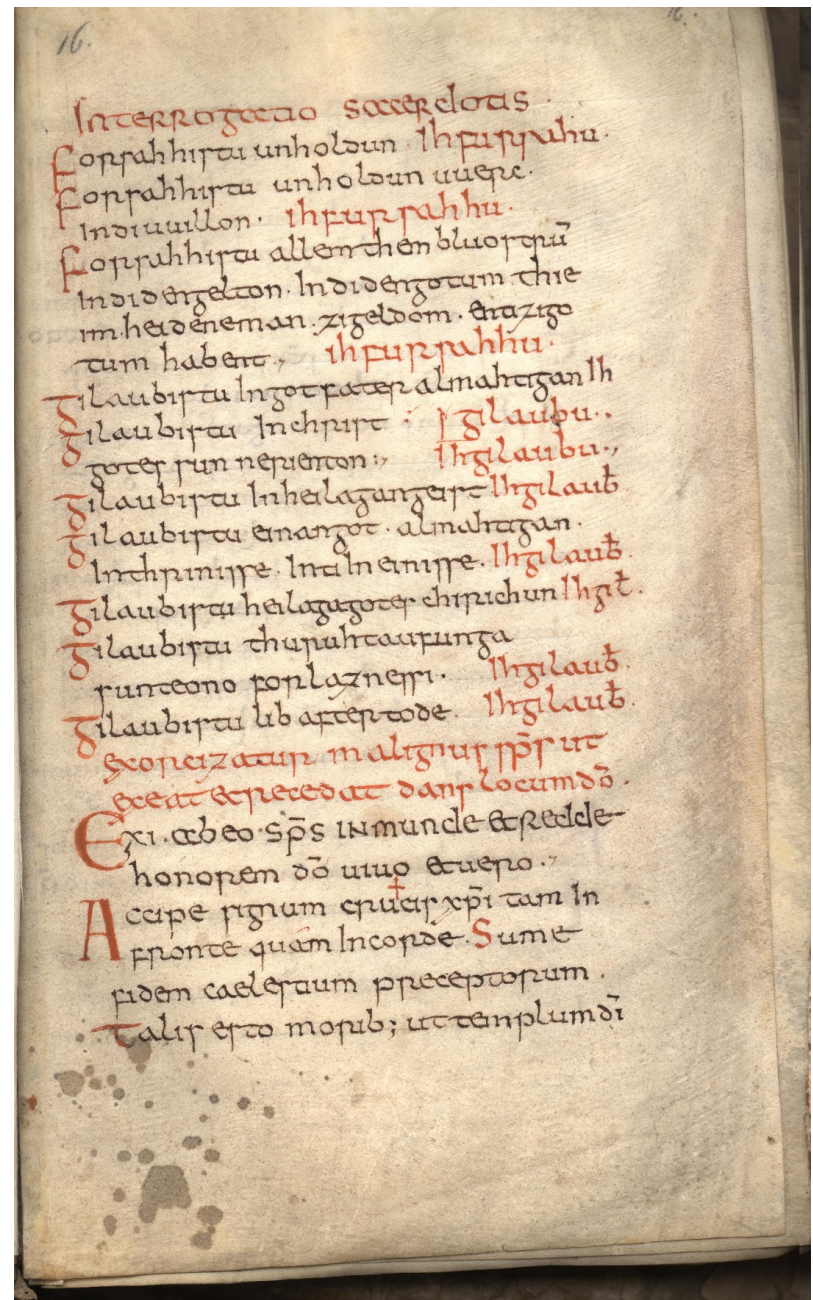 16.
Interrogatio sacerdotis.
Forsahhistu unholdun. Ih fursahu.
Forsahhistu unholdun uuerc.
Indi uuillon. ih fursahhu.
Forsahhistu allem them bluostrū
Indi den gelton. Indi den gotum thie
im heidene man. zi geldom. enti zi go
tum habent. ih fursahhu.
Gilaubistu In got fater almahtigan Ih
Gilaubistu In christ gilaubu.
gotes sun nerienton. Ih gilaubu.
Gilaubistu In heilagan geist Ih gilaub̄
Gilaubistu einan got. almahtigan.
In thrinisse. Inti In einisse. Ih gilaub̄.
Gilaubistu heilaga gotes chirichun Ih gil̄.
Gilaubistu thuruh taufunga
sunteono forlaznessi. Ih gilaub̄.
Gilaubistu lib after tode. Ih gilaub̄.
exorcizatur malignus sp̄s ut
exeat et recedat dans locum dō.
Exi. ab eo. sp̄s inmunde et redde
honorem dō uiuo et uero.
Accipe signum crucis xp̄i tam In
fronte quam In corde. Sume
fidem caelestium preceptorum.
Talis esto morib; ut templum dī